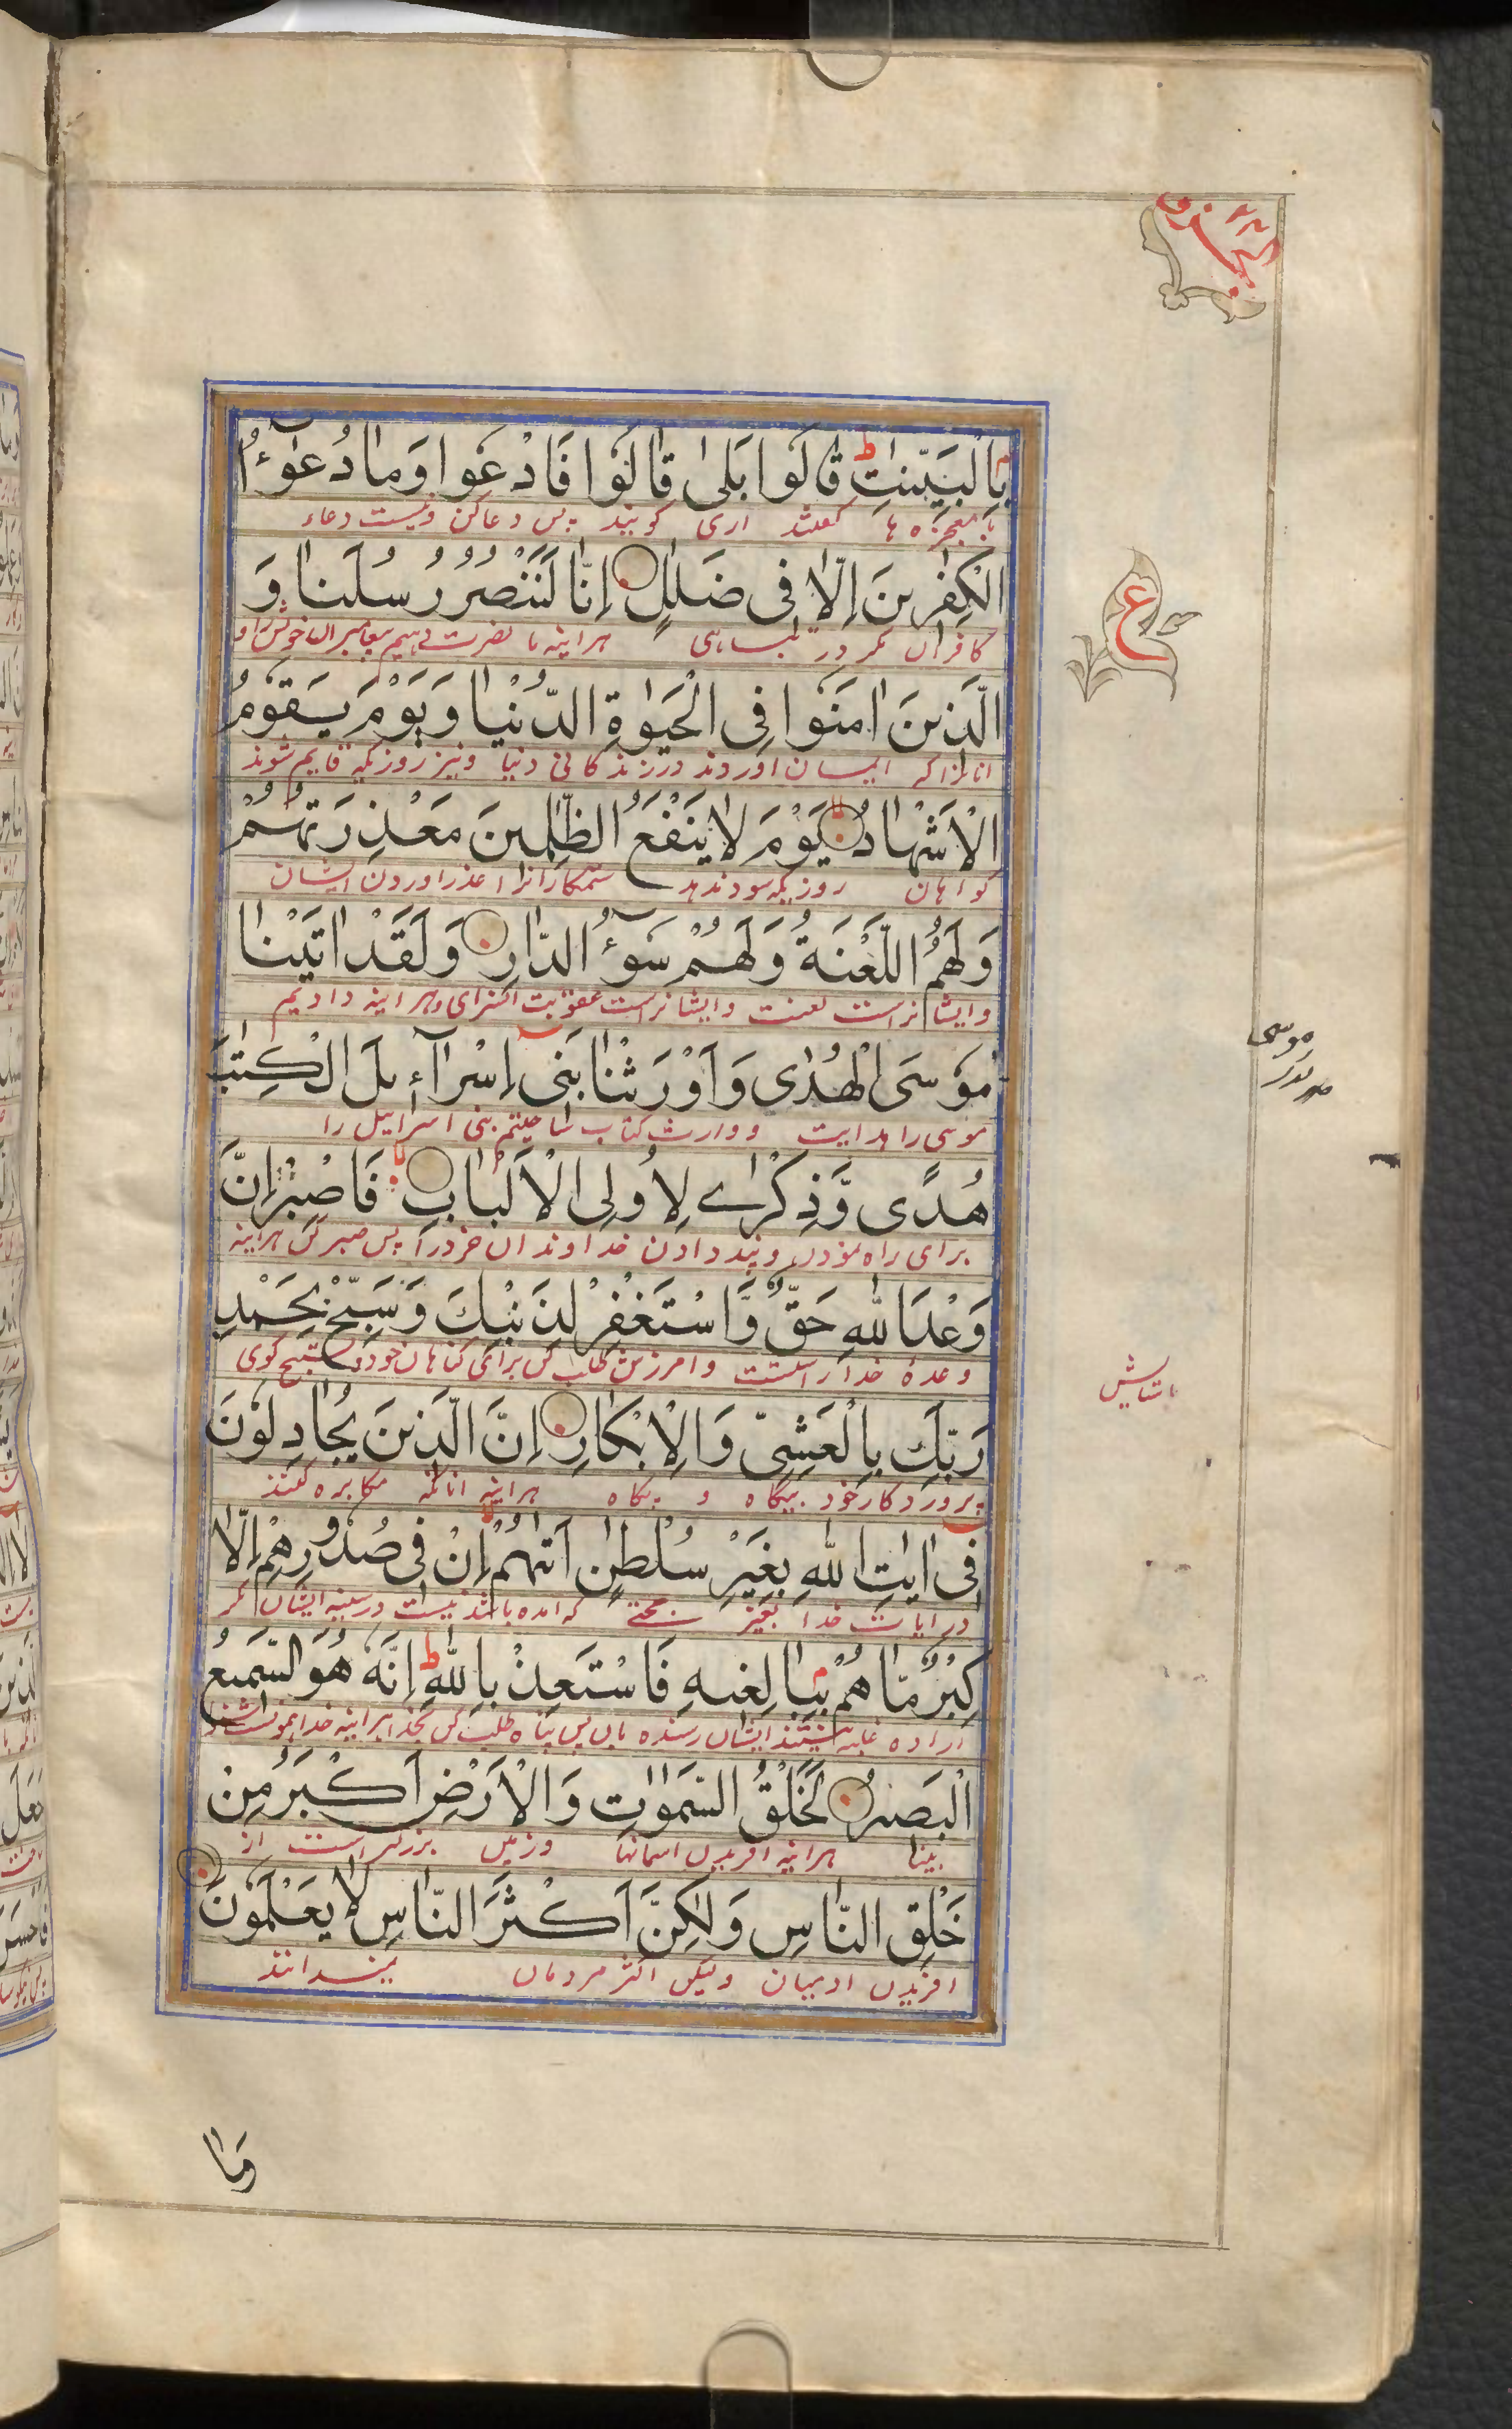 الجزو ٢٤
بِالْبَيِّنٰتِ ط قَالُوْا بَلٰى قَالُوْا فَادْعُوْا وَمَا دُعٰٓؤُا
با معجزه ها گفتند اری گویند پس دعا کن ونیست دعاء
الْكٰفِرِيْنَ اِلَّا فِى ضَلٰلٍ اِنَّا لَنَنْصُرُ رُسُلَنَا وَ
کافران مکر در تباهی هراینه ما نصرت دهیم پیغامبران خویش را و
الَّذِيْنَ اٰمَنُوْا فِى الْحَيٰوةِ الدُّنْيَا وَيَوْمَ يَقُوْمُ
انانرا که ایمان اوردند در زندکانی دنیا ونیز روزیکه قایم شوند
الْاَشْهَادُ يَوْمَ لَا يَنْفَعُ الظّٰلِمِيْنَ مَعْذِرَتُهُمْ
کواهان روزیکه سود ندهد ستمکارانرا عذر اوردن ایشان
وَلَهُمُ اللَّعْنَةُ وَلَهُمْ سُوْٓءُ الدَّارِ وَلَقَدْ اٰتَيْنَا
وایشانراست لعنت وایشانراست عقوبت انسرای وهراینه دادیم
مُوْسَى الْهُدٰى وَاَوْرَثْنَا بَنِى اِسْرَآءِيْلَ الْكِتٰبَ
موسی را هدایت و وارث کتاب ساختیم بنی اسرائیل را
هُدًى وَّذِكْرٰى لِاُولِى الْاَلْبَابِ فَاصْبِرْ اِنَّ
برای راه نمودن و پند دادن خداوندان خرد را پس صبر کن هراینه
وَعْدَ اللّٰهِ حَقٌّ وَّاسْتَغْفِرْ لِذَنْبِكَ وَسَبِّحْ بِحَمْدِ
وعدهٔ خدا راستست و امرزش طلب کن برای کناهان خود و تسبیح کوی
رَبِّكَ بِالْعَشِىِّ وَالْاِبْكَارِ اِنَّ الَّذِيْنَ يُجَادِلُوْنَ
پروردکار خود بیکاه و پکاه هراینه انانکه مکابره کنند
فِى اٰيٰتِ اللّٰهِ بِغَيْرِ سُلْطٰنٍ اَتٰىهُمْ اِنْ فِى صُدُوْرِهِمْ اِلَّا
در ایات خدا بغیر حجتی که امده باشد نیست در سینه ایشان مکر
كِبْرٌ مَّا هُمْ بِبَالِغِيْهِ فَاسْتَعِذْ بِاللّٰهِ ط اِنَّهٗ هُوَ السَّمِيْعُ
اراده غلبه نیستند ایشان رسنده بان پس پناه طلب کن بخدا هراینه خدا همونست شنوا
الْبَصِيْرُ لَخَلْقُ السَّمٰوٰتِ وَالْاَرْضِ اَكْبَرُ مِنْ
بینا هراینه افریدن اسمانها وزمین بزرکتر است از
خَلْقِ النَّاسِ وَلٰكِنَّ اَكْثَرَ النَّاسِ لَا يَعْلَمُوْنَ
افریدن ادمیان ولیکن اکثر مردمان نمیدانند
وَمَا
ع
موسی
باستایش